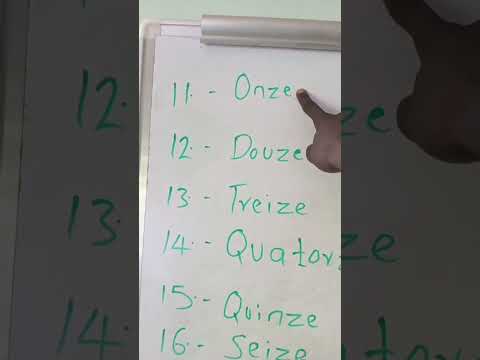 11. - Onze
12. - Douze
13. - Treize
14. - Quatorz
15. - Quinze
16. - Seize